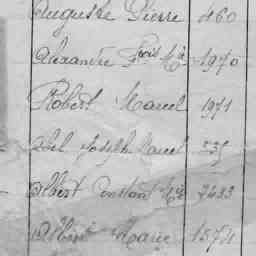 Auguste Pierre 460
Alexandre Frois Mie 1970
Robert Marcel 1971
Abel Joseph Marcel 535
Albert Constant Mie 2433
Albine Marie 1574